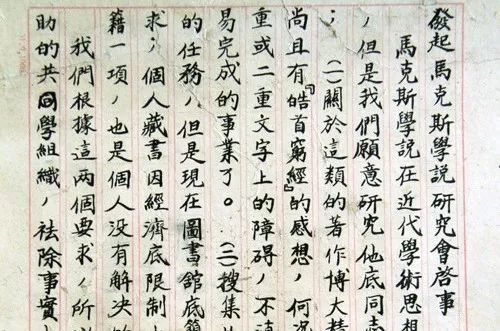 發起馬克斯學説研究會啓事
馬克斯學説在近代學術思想
；但是我們願意研究他底同志
(一)關於這類的著作博大精
尚且有『皓首窮經』的感想，何况
重或二重文字上的障碍，不
易完成的事業了。(二)搜集
的任務，但是現在圖書舘底
求；個人藏書因經濟底限制
籍一項，也是個人没有解决的
我們根據這两個要求，所以
助的共同學組織，祛除事實